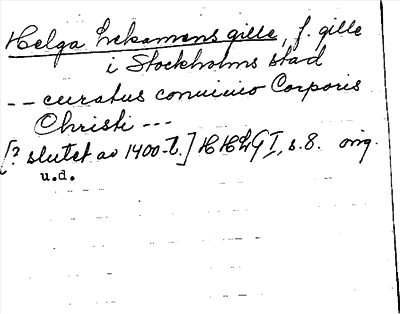 Helga Lekamens gille, f. gille
i Stockholms stad
-- curatus conuiuio Corporis
Christi ---
[? slutet av 1400-t.] HHLG I, s. 8. orig.
u.d.